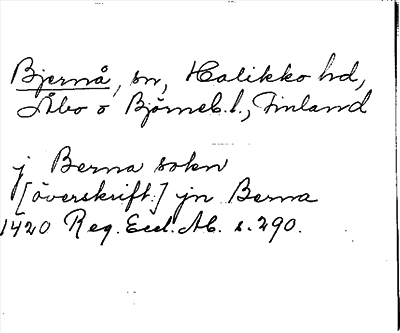 Bjernå, sn, Halikko hd,
Åbo o Björneb. l., Finland
j Berna sokn
[överskrift:] jn Berna
1420 Reg. Eccl. Ab. s. 290.